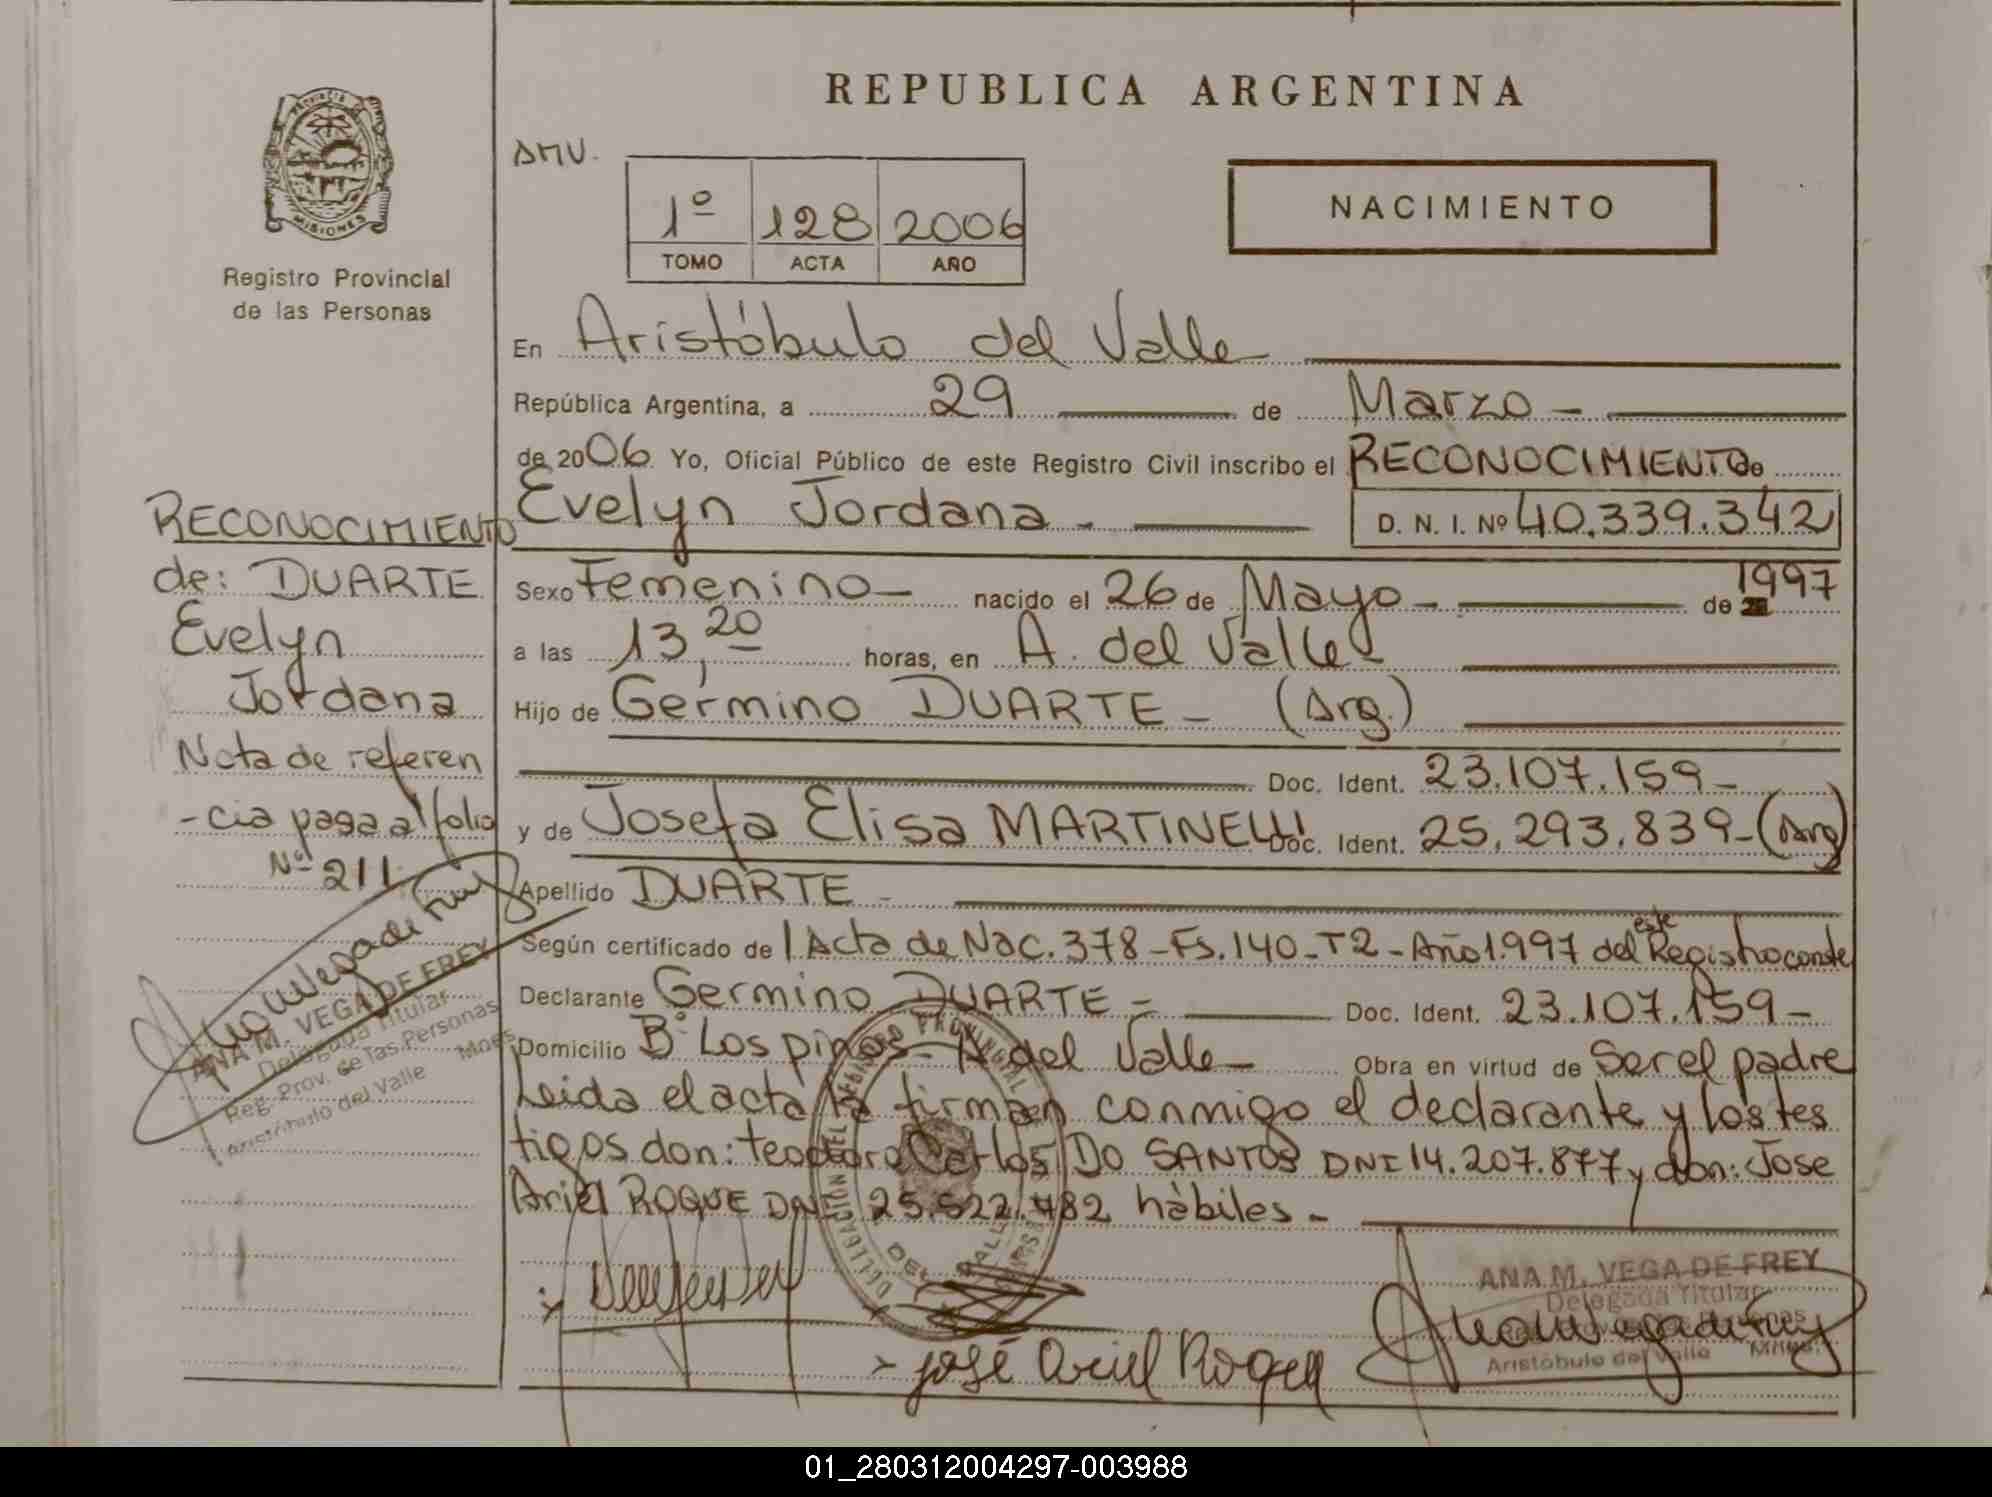 REPUBLICA ARGENTINA
MISIONES
Registro Provincial
de las Personas
AMV.
1º 128 2006
TOMO ACTA AÑO
NACIMIENTO
En Aristóbulo del Valle
República Argentina, a 29 de Marzo
de 2006 Yo, Oficial Público de este Registro Civil inscribo el RECONOCIMIENTO de
Evelyn Jordana - D. N. I. Nº 40.339.342
Sexo Femenino nacido el 26 de Mayo - de 1997
a las 13,20 horas, en A. del Valle
Hijo de Germino DUARTE - (Arg.)
Doc. Ident. 23.107.159-
y de Josefa Elisa MARTINELLI Doc. Ident. 25.293.839-(Arg)
Apellido DUARTE -
Según certificado de 1 Acta de Nac. 378-Fs.140-T2-Año 1.997 del este Registro conste
Declarante Germino DUARTE = Doc. Ident. 23.107.159-
Domicilio Bº Los pinos - A del Valle - Obra en virtud de Ser el padre
Leida el acta la firman conmigo el declarante y los tes
tigos don: teodoro Carlos DO SANTOS DNI 14.207.877 y don: Jose
Ariel ROQUE DNI 25.522.782 hàbiles -
RECONOCIMIENTO
de: DUARTE
Evelyn
Jordana
Nota de referen
-cia paga al folio
Nº 211
ANA M. VEGA DE FREY
Delegada Titular
Reg. Prov. de las Personas
Aristóbulo del Valle Mnes.
DELEGACIÓN DEL REGISTRO PROVINCIAL
DEL VALLE
José Ariel Roque
ANA M. VEGA DE FREY
Delegada Titular
Aristóbulo del Valle Mnes.
01_280312004297-003988